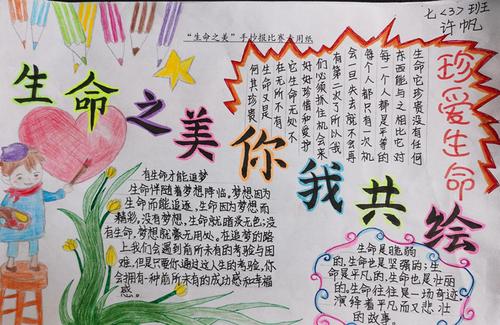 七〈3〉班
许帆
“生命之美”手抄报比赛专用纸
生命之美你我共绘
珍爱生命
生命它珍贵没有任何
东西能与之相比它对
每一个人都是平等的
每个人都只有一次机
会一旦失去就不会再
有第二次了所以我
们必须抓住机会来
好好珍惜和爱护
它生命无处不
在无所不有
生命又是
何其珍贵
有生命才能追梦
生命伴随着梦想降临,梦想因为
生命而能追逐,生命因为梦想而
精彩,没有梦想,生命就暗淡无色;没
有生命,梦想就毫无用处。在追梦的路
上我们会遇到前所未有的考验与困
难,但是只要你通过这人生的考验,你
会拥有一种前所未有的成功感和幸福
感
生命是脆弱
的,生命也是坚强的;生
命是平凡的,生命也是壮丽
的,生命往往是一场奇迹
演绎着平凡而又悲壮
的故事